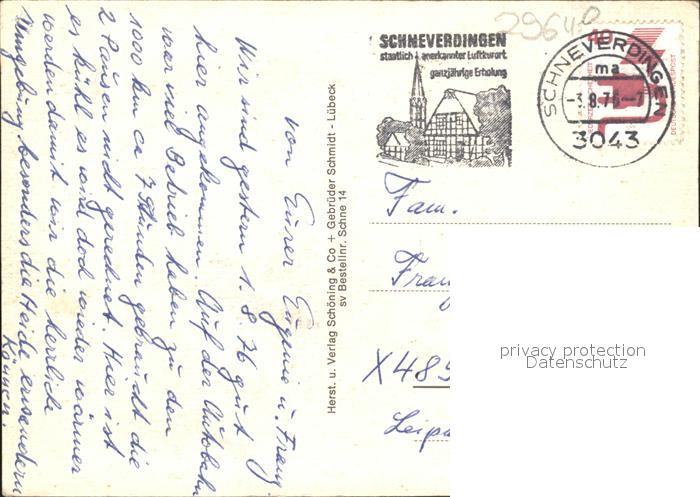 29640
SCHNEVERDINGEN
staatlich anerkannter Luftkurort
ganzjährige Erholung
SCHNEVERDINGEN
ma
-3.8.76-7
3043
40
DEUTSCHE BUNDESPOST
Wir sind gestern 1. 8. 76 gut
hier angekommen. Auf der Autobahn
war viel Betrieb haben zu den
1000 km ca 7 Stunden gebraucht die
2 Pausen nicht gerechnet. Hier ist
es kühl es wird doch wieder wärmer
werden damit wir die herrliche
Umgebung besonders die Heide
können.
von Eurer Eugenie u. Franz
Herst. u. Verlag Schöning & Co + Gebrüder Schmidt - Lübeck
sv Bestellnr. Schne 14
Fam.
X 485
privacy protection
Datenschutz